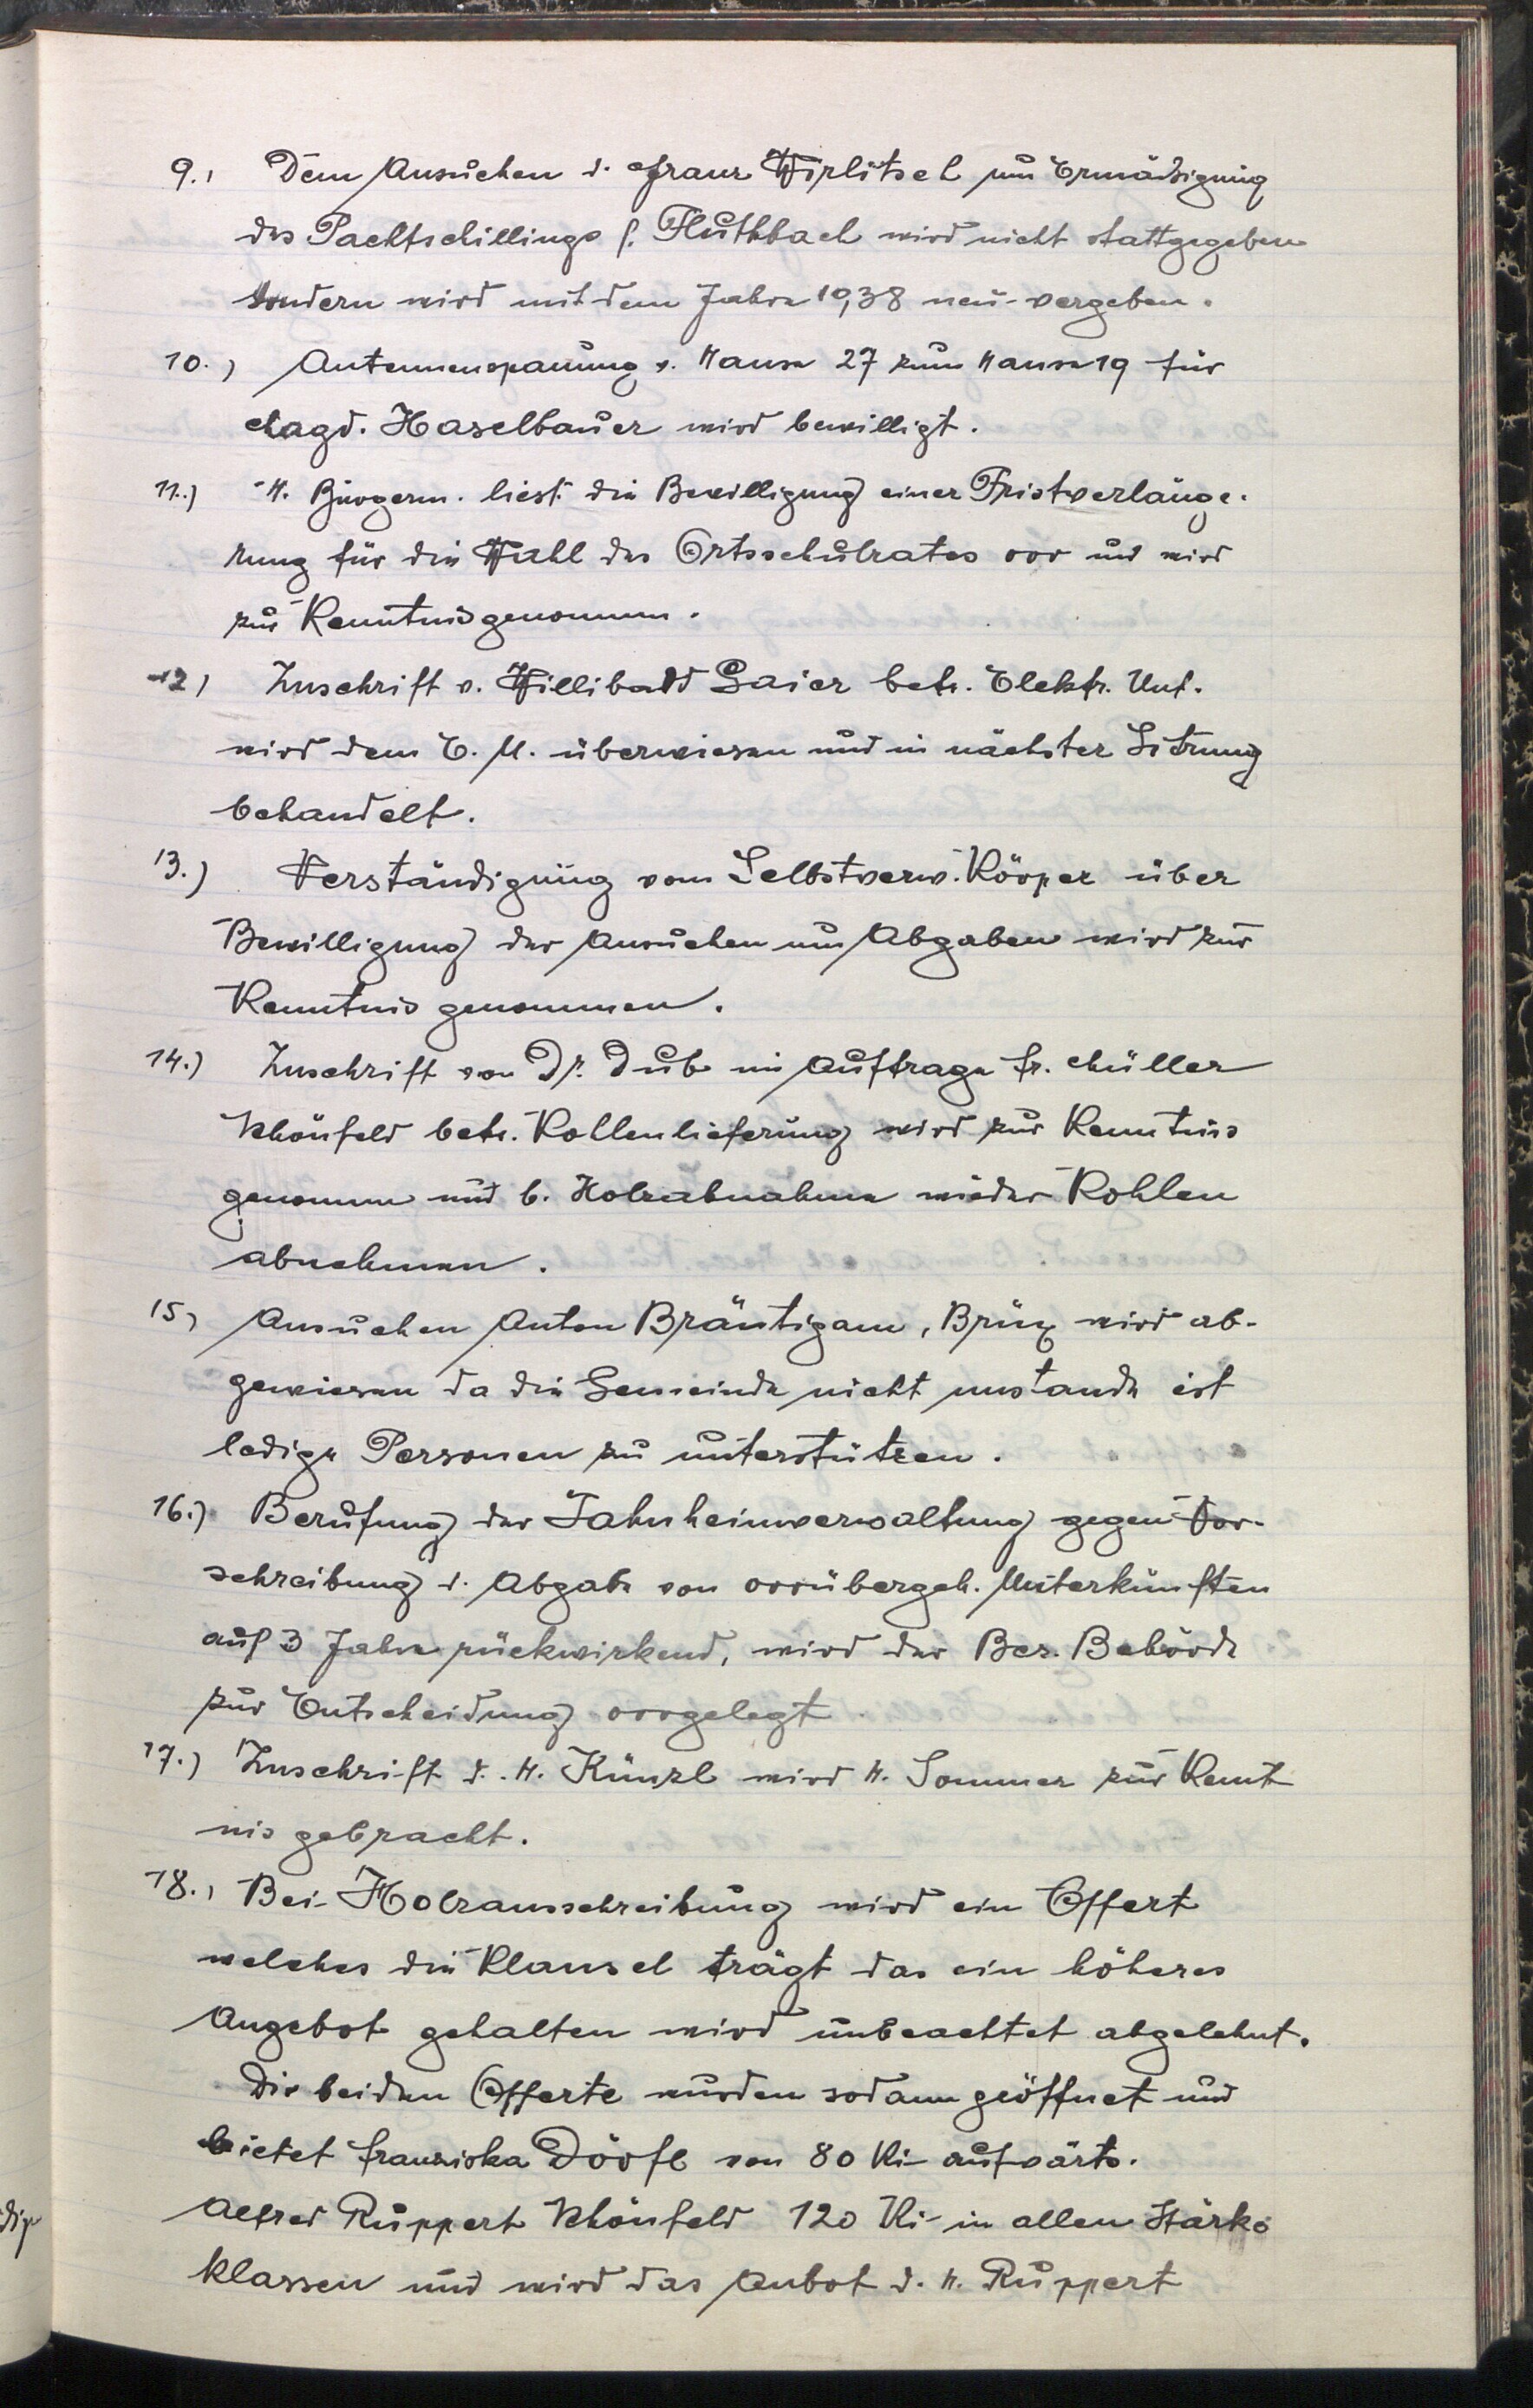 9.) Dem Ansuchen d. Franz Wirlitsch um Ermäßigung
des Pachtschillings f. Fluthbach wird nicht stattgegeben
sondern wird mit dem Jahre 1938 neu vergeben.
10.) Antennenspannung v. Hause 27 zum Hause 19 für
Magd. Haselbauer wird bewilligt.
11.) H. Bürgerm. liest die Bewilligung einer Fristverlänge-
rung für die Wahl des Ortsschulrates vor und wird
zur Kenntnis genommen.
12.) Zuschrift v. Willibald Gaier betr. Elektr. Unt.
wird dem E. U. überwiesen und in nächster Sitzung
behandelt.
13.) Verständigung vom Selbstverw. Körper über
Bewilligung der Ansuchen um Abgaben wird zur
Kenntnis genommen.
14.) Zuschrift von Dr. Dub im Auftrage Fr. Müller
Schönfeld betr. Kohlenlieferung wird zur Kenntnis
genommen und b. Holzabnahme wieder Kohlen
abnehmen.
15.) Ansuchen Anton Bräutigam, Brüx wird ab-
gewiesen da die Gemeinde nicht imstande ist
ledige Personen zu unterstützen.
16.) Berufung der Jahnheimverwaltung gegen Vor-
schreibung d. Abgabe von vorübergeh. Unterkünften
auf 3 Jahre rückwirkend, wird der Bez. Behörde
zur Entscheidung vorgelegt
17.) Zuschrift d. H. Künzl wird H. Sommer zur Kennt
nis gebracht.
18.) Bei Holzausschreibung wird ein Offert
welches die Klausel trägt das ein höheres
Angebot gehalten wird unbeachtet abgelehnt.
Die beiden Offerte wurden sodann geöffnet und
bietet Franziska Dörfl von 80 Kč aufwärts.
Alfred Ruppert Schönfeld 120 Kč in allen Stärke
klassen und wird das Anbot d. H. Ruppert